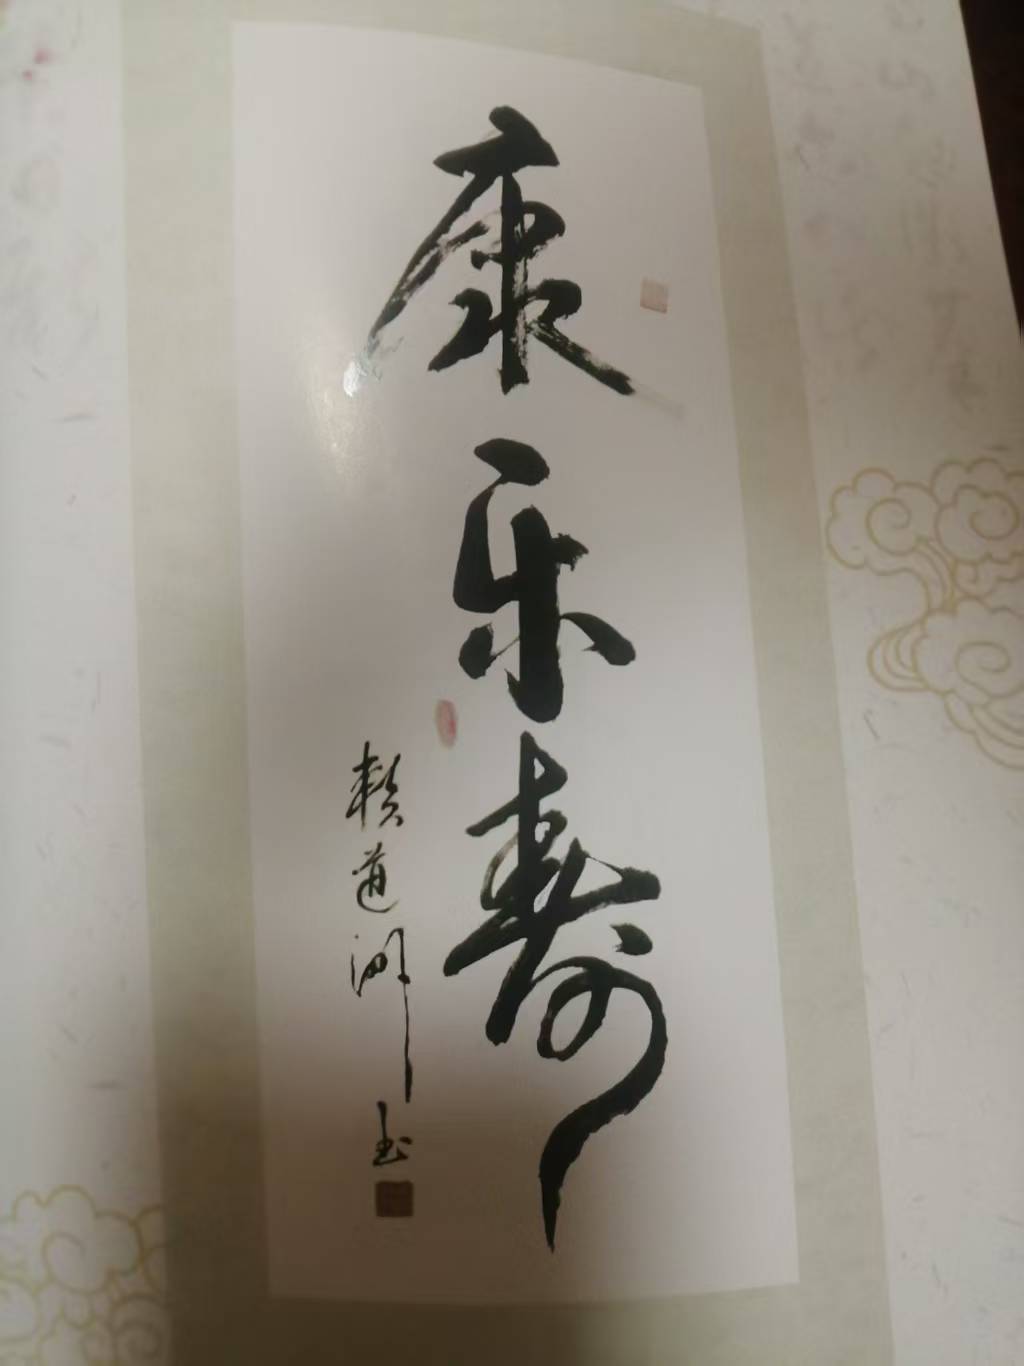 康乐寿
赖道洲书